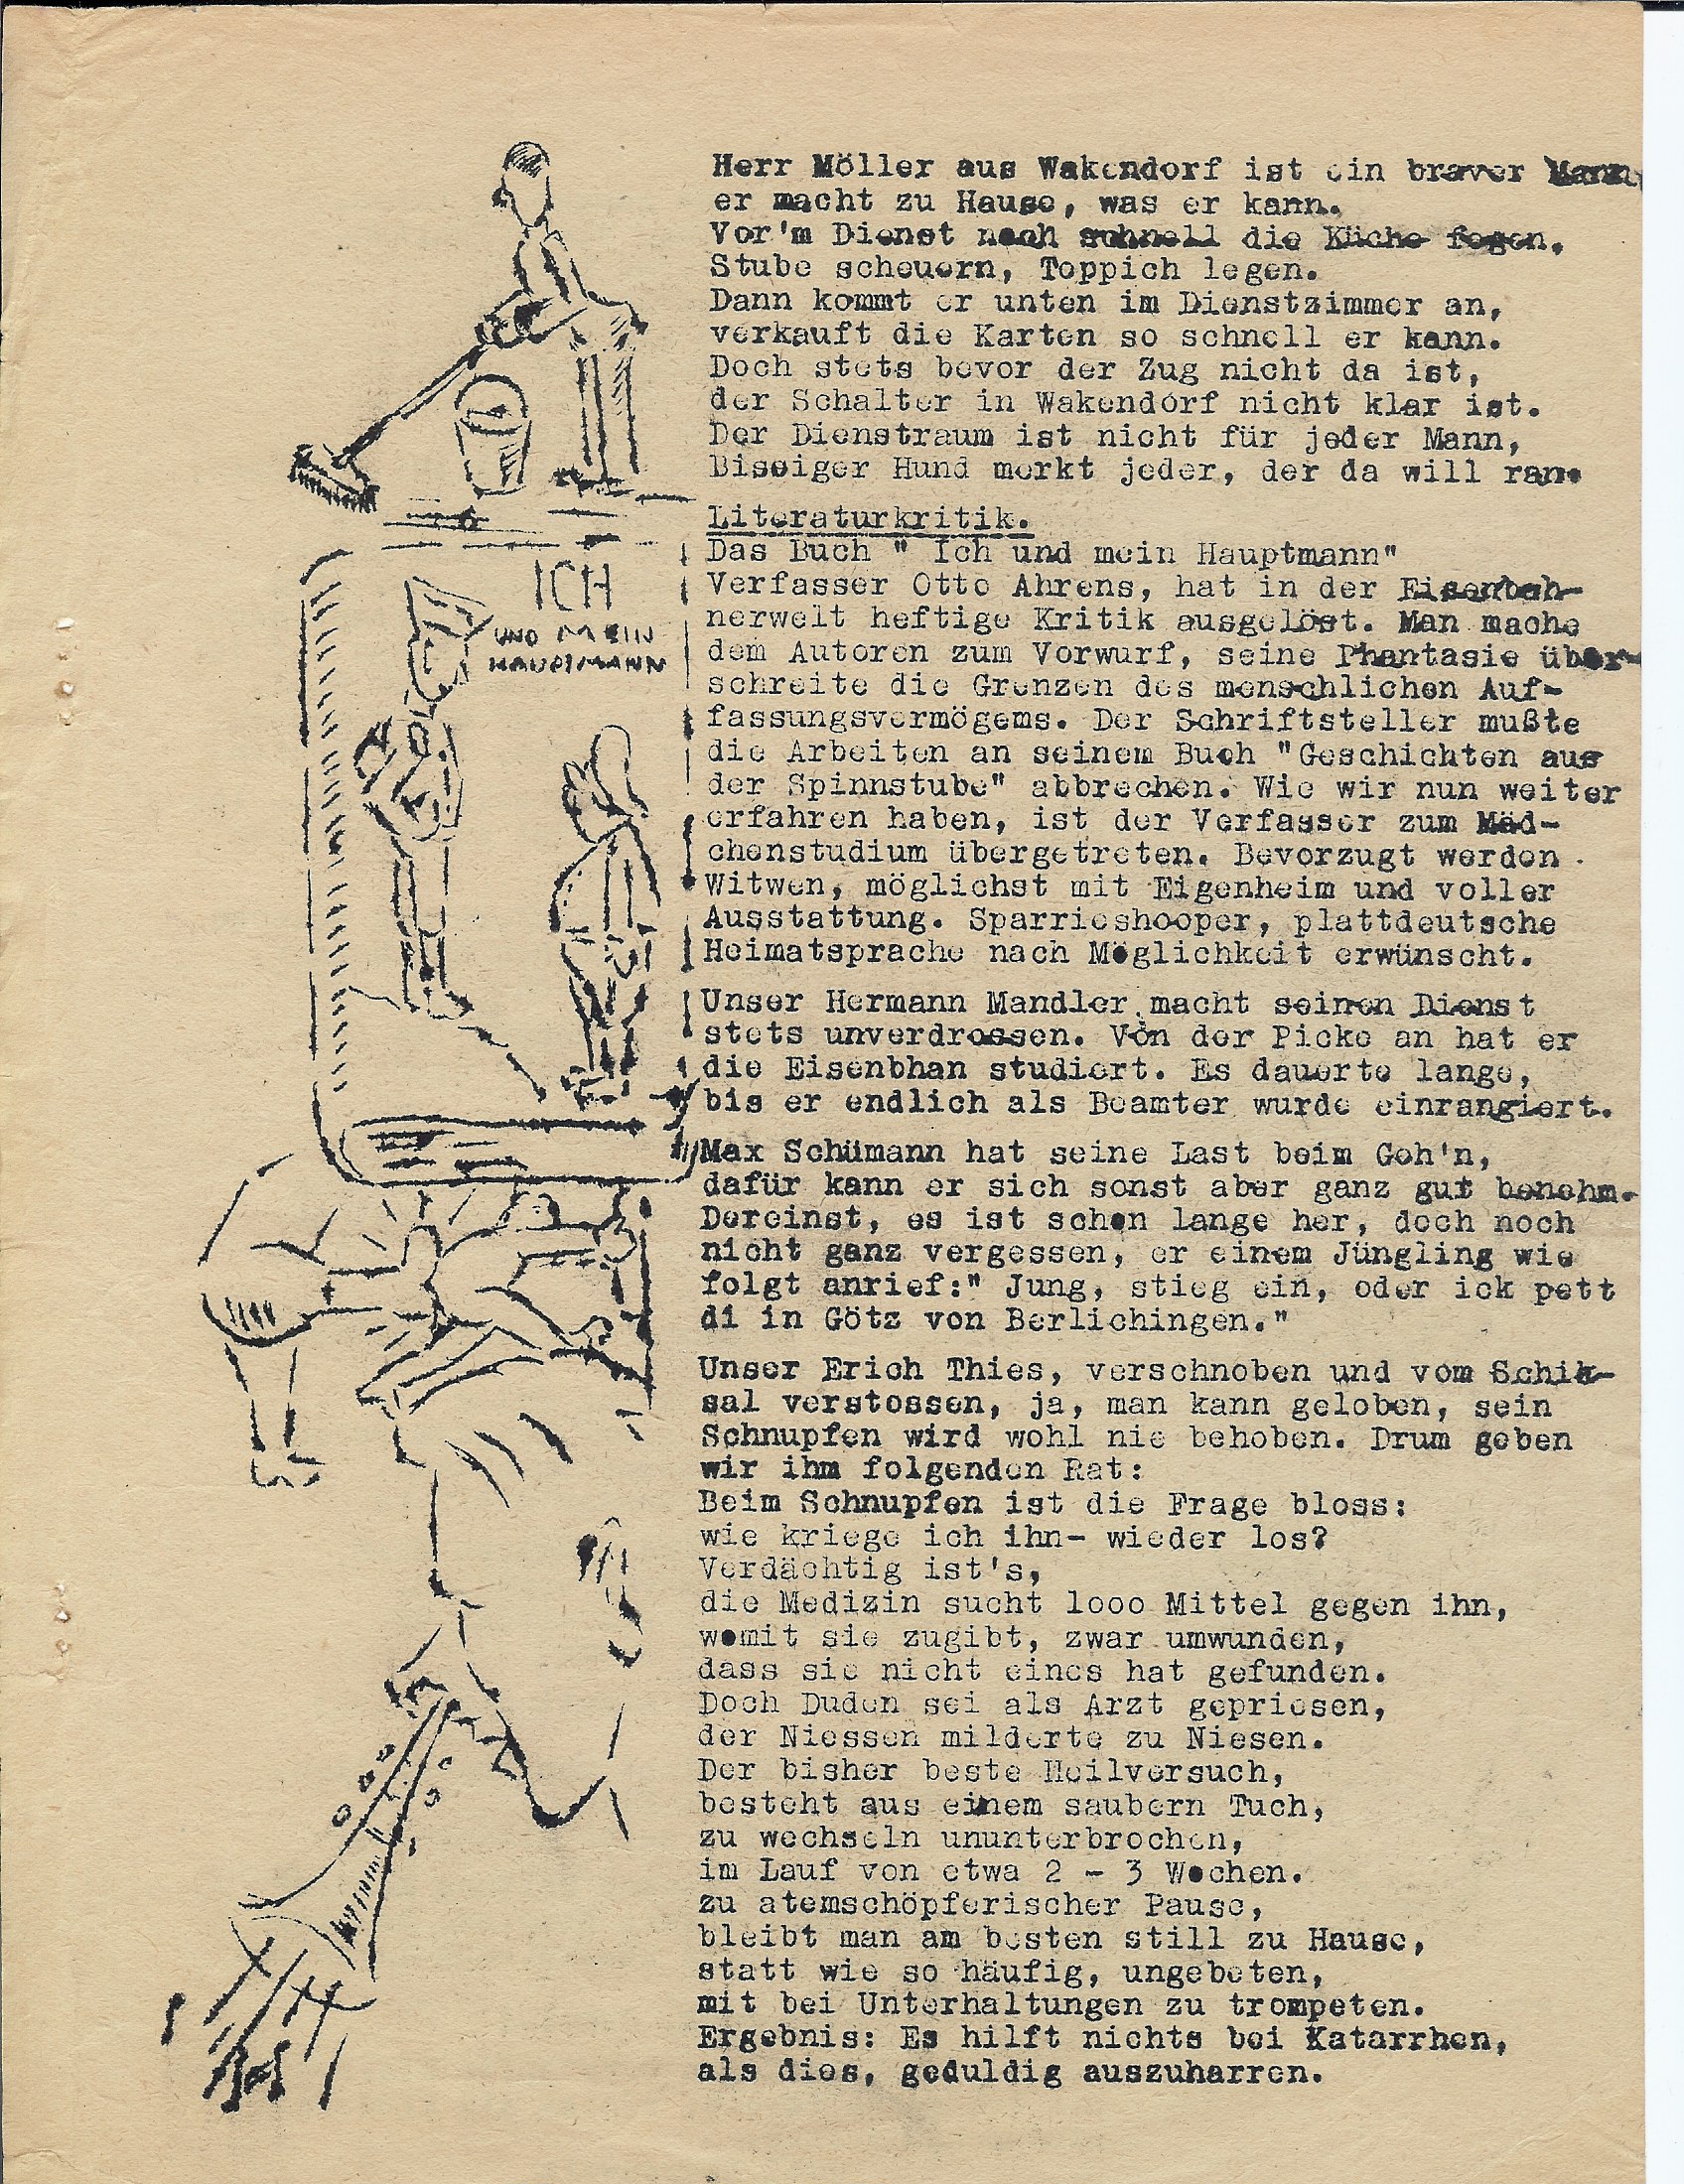 Herr Möller aus Wakendorf ist ein braver Mann
er macht zu Hause, was er kann.
Vor'm Dienst noch schnell die Küche fegen,
Stube scheuern, Teppich legen.
Dann kommt er unten im Dienstzimmer an,
verkauft die Karten so schnell er kann.
Doch stets bevor der Zug nicht da ist,
der Schalter in Wakendorf nicht klar ist.
Der Dienstraum ist nicht für jeder Mann,
Bissiger Hund merkt jeder, der da will ran.
Literaturkritik.
Das Buch " Ich und mein Hauptmann"
Verfasser Otto Ahrens, hat in der Eisenbah-
nerwelt heftige Kritik ausgelöst. Man mache
dem Autoren zum Vorwurf, seine Phantasie über-
schreite die Grenzen des menschlichen Auf-
fassungsvermögems. Der Schriftsteller mußte
die Arbeiten an seinem Buch "Geschichten aus
der Spinnstube" abbrechen. Wie wir nun weiter
erfahren haben, ist der Verfasser zum Mäd-
chenstudium übergetreten. Bevorzugt werden
Witwen, möglichst mit Eigenheim und voller
Ausstattung. Sparrieshooper, plattdeutsche
Heimatsprache nach Möglichkeit erwünscht.
ICH
UND MEIN
HAUPTMANN
Unser Hermann Mandler macht seinen Dienst
stets unverdrossen. Von der Picke an hat er
die Eisenbhan studiert. Es dauerte lange,
bis er endlich als Beamter wurde einrangiert.
Max Schümann hat seine Last beim Geh'n,
dafür kann er sich sonst aber ganz gut benehm.
Dereinst, es ist schon lange her, doch noch
nicht ganz vergessen, er einem Jüngling wie
folgt anrief:" Jung, stieg ein, oder ick pett
di in Götz von Berlichingen."
Unser Erich Thies, verschnoben und vom Schik-
sal verstossen, ja, man kann geloben, sein
Schnupfen wird wohl nie behoben. Drum geben
wir ihm folgenden Rat:
Beim Schnupfen ist die Frage bloss:
wie kriege ich ihn- wieder los?
Verdächtig ist's,
die Medizin sucht 1ooo Mittel gegen ihn,
womit sie zugibt, zwar umwunden,
dass sie nicht eines hat gefunden.
Doch Duden sei als Arzt gepriesen,
der Niessen milderte zu Niesen.
Der bisher beste Heilversuch,
besteht aus einem saubern Tuch,
zu wechseln ununterbrochen,
im Lauf von etwa 2 - 3 Wochen.
zu atemschöpferischer Pause,
bleibt man am besten still zu Hause,
statt wie so häufig, ungebeten,
mit bei Unterhaltungen zu trompeten.
Ergebnis: Es hilft nichts bei Katarrhen,
als dies, geduldig auszuharren.